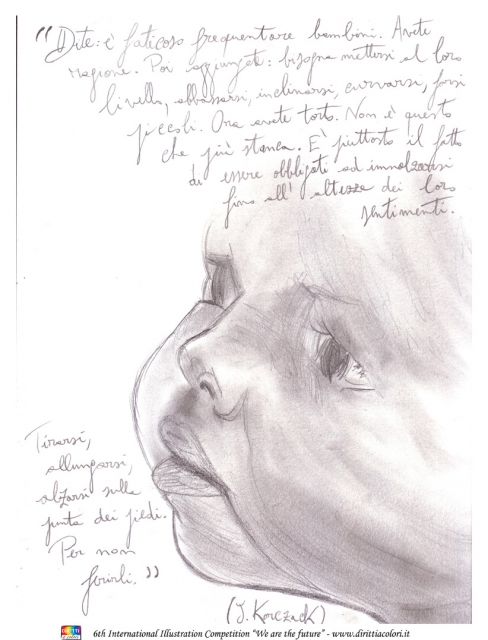 “Dite: è faticoso frequentare bambini. Avete
ragione. Poi aggiungete: bisogna mettersi al loro
livello, abbassarsi, inclinarsi, curvarsi, farsi
piccoli. Ora avete torto. Non è questo
che più stanca. E' piuttosto il fatto
di essere obbligati ad innalzarsi
fino all' altezza dei loro
sentimenti.
Tirarsi,
allungarsi,
alzarsi sulla
punta dei piedi.
Per non
ferirli.”
(J. Korczack)
6th International Illustration Competition "We are the future" - www.dirittiacolori.it